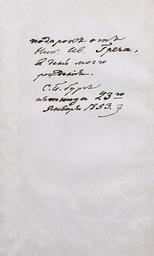 подарокъ отъ
Ник. Ив. Греча,
в день моего
рожденія.
С.П.бургъ
пятница 23го
Января 1853.